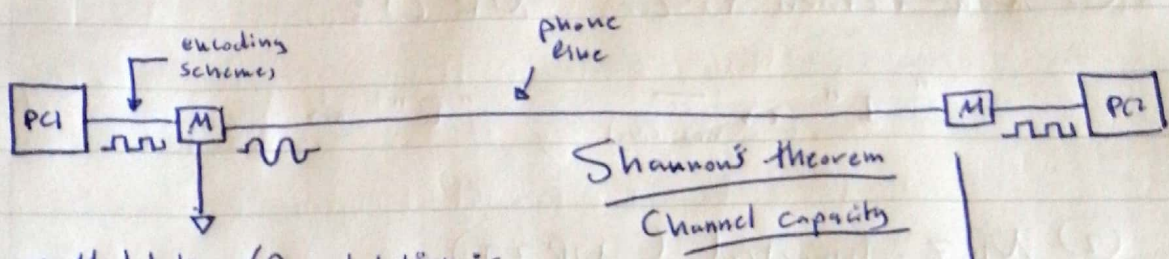 encoding
schemes
phone
line
PC1
M
M
PC2
Shannon's theorem
Channel capacity